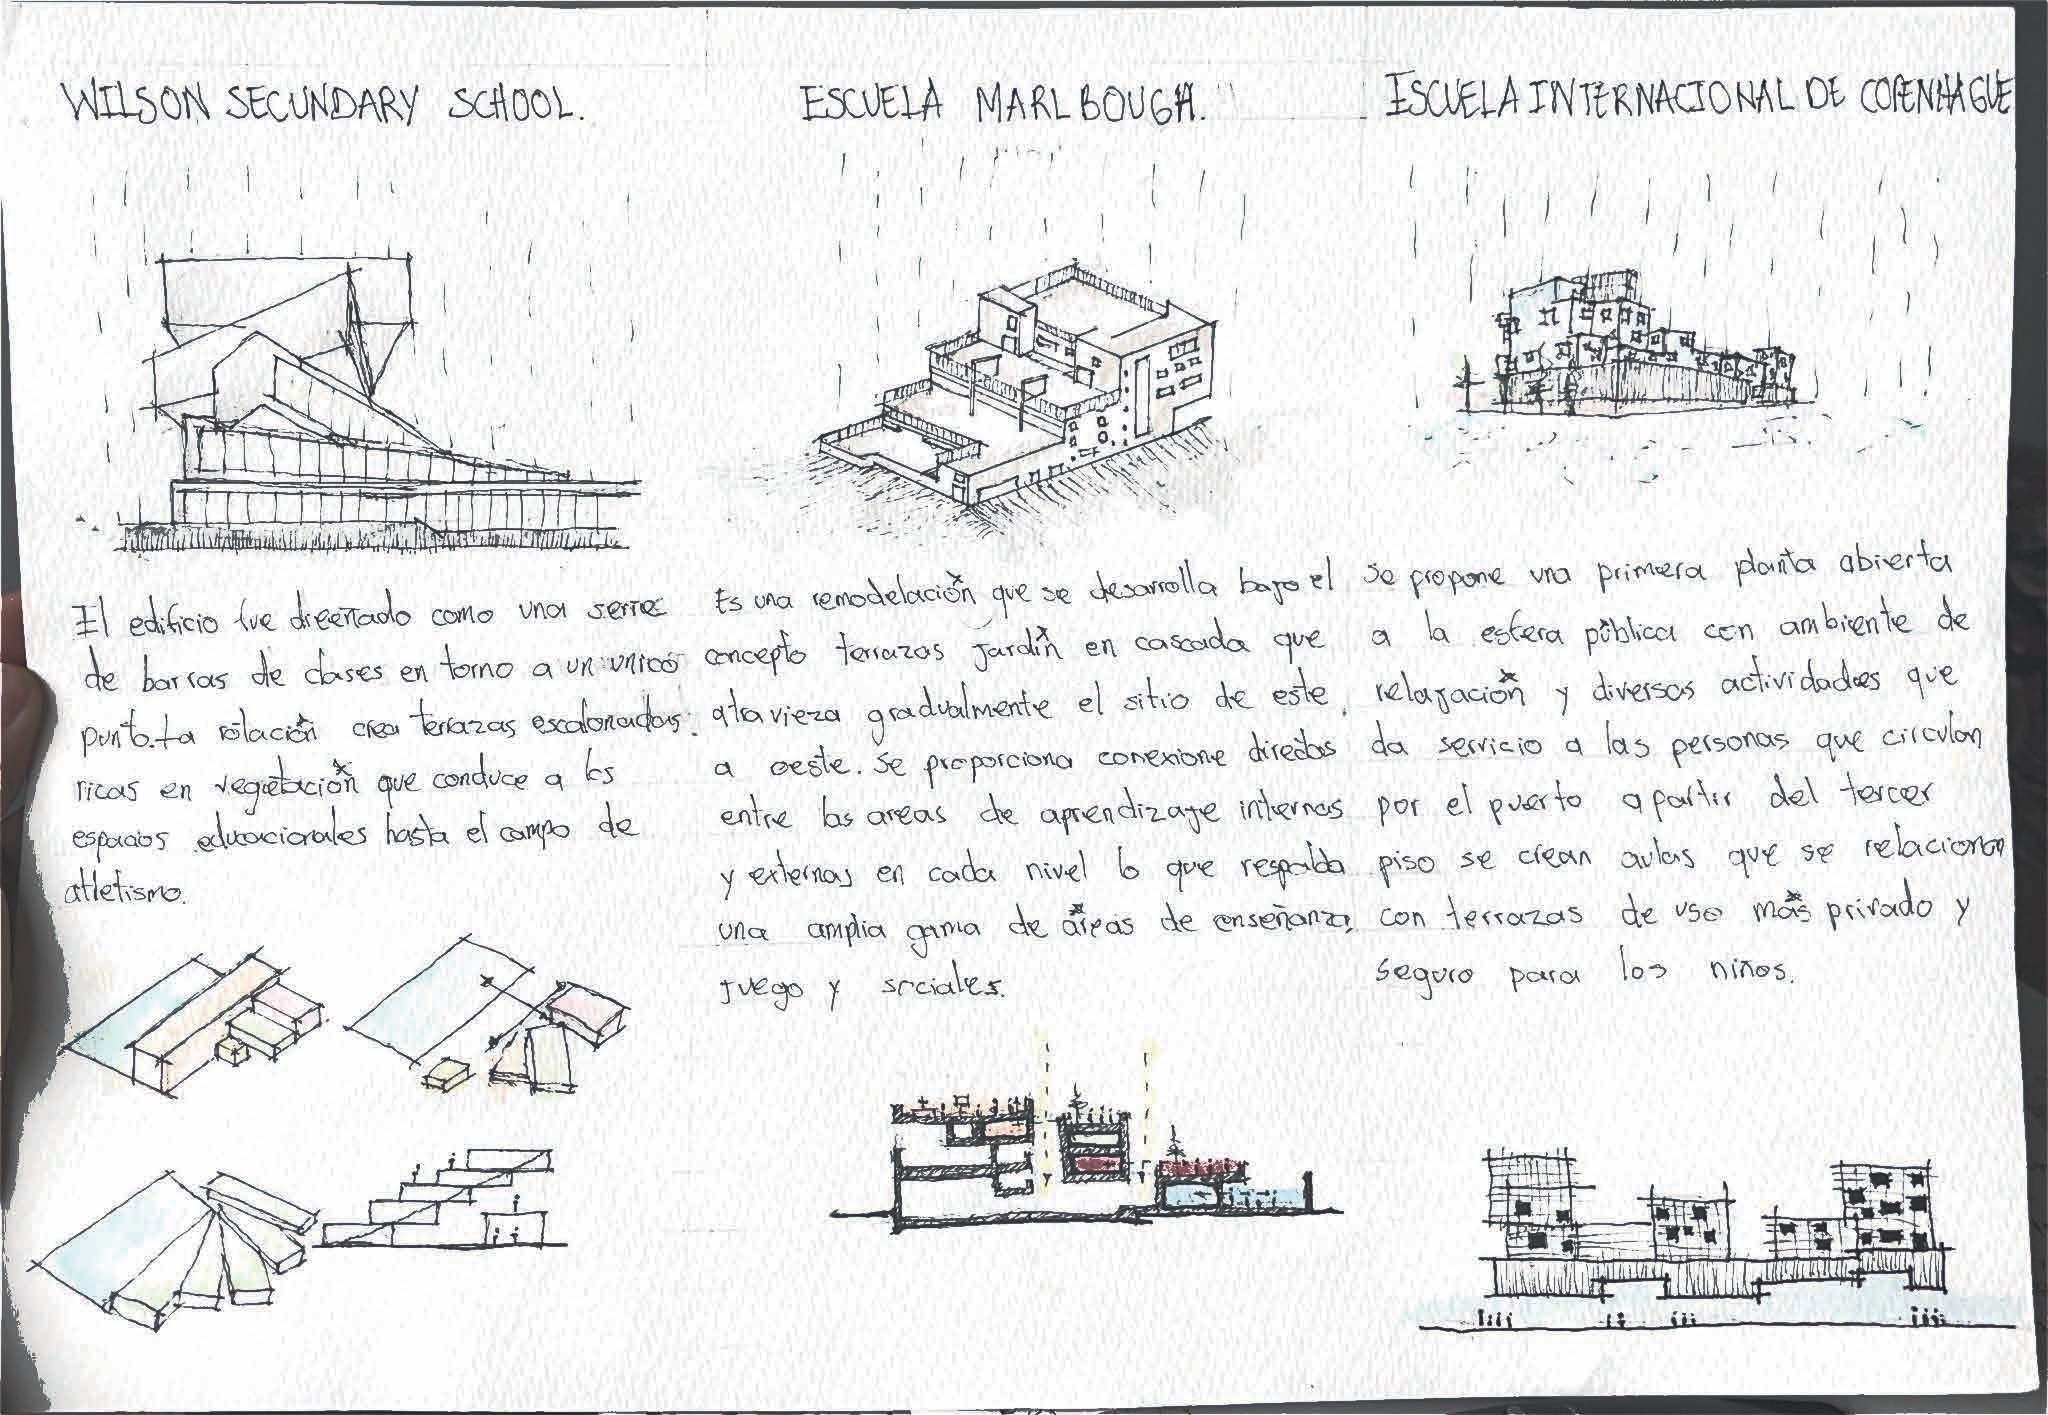 WILSON SECUNDARY SCHOOL.
El edificio fue diceñado como una serie
de barras de clases en torno a un unico
punto. La rotación crea terrazas escalonadas
ricas en vegetación que conduce a los
espacios educacionales hasta el campo de
atletismo.
ESCUELA MARLBOUGH.
Es una remodelación que se desarrolla bajo el
concepto terrazas jardín en cascada que
atravieza gradualmente el sitio de este
a oeste. Se proporciona conexione directas
entre las areas de aprendizaje internas
y externas en cada nivel lo que respalda
una amplia gama de áreas de enseñanza,
juego y sociales.
ESCUELA INTERNACIONAL DE COPENHAGUE
Se propone una primera planta abierta
a la esfera pública con ambiente de
relajación y diversas actividades que
da servicio a las personas que circulan
por el puerto apartir del tercer
piso se crean aulas que se relacionan
con terrazas de uso más privado y
seguro para los niños.